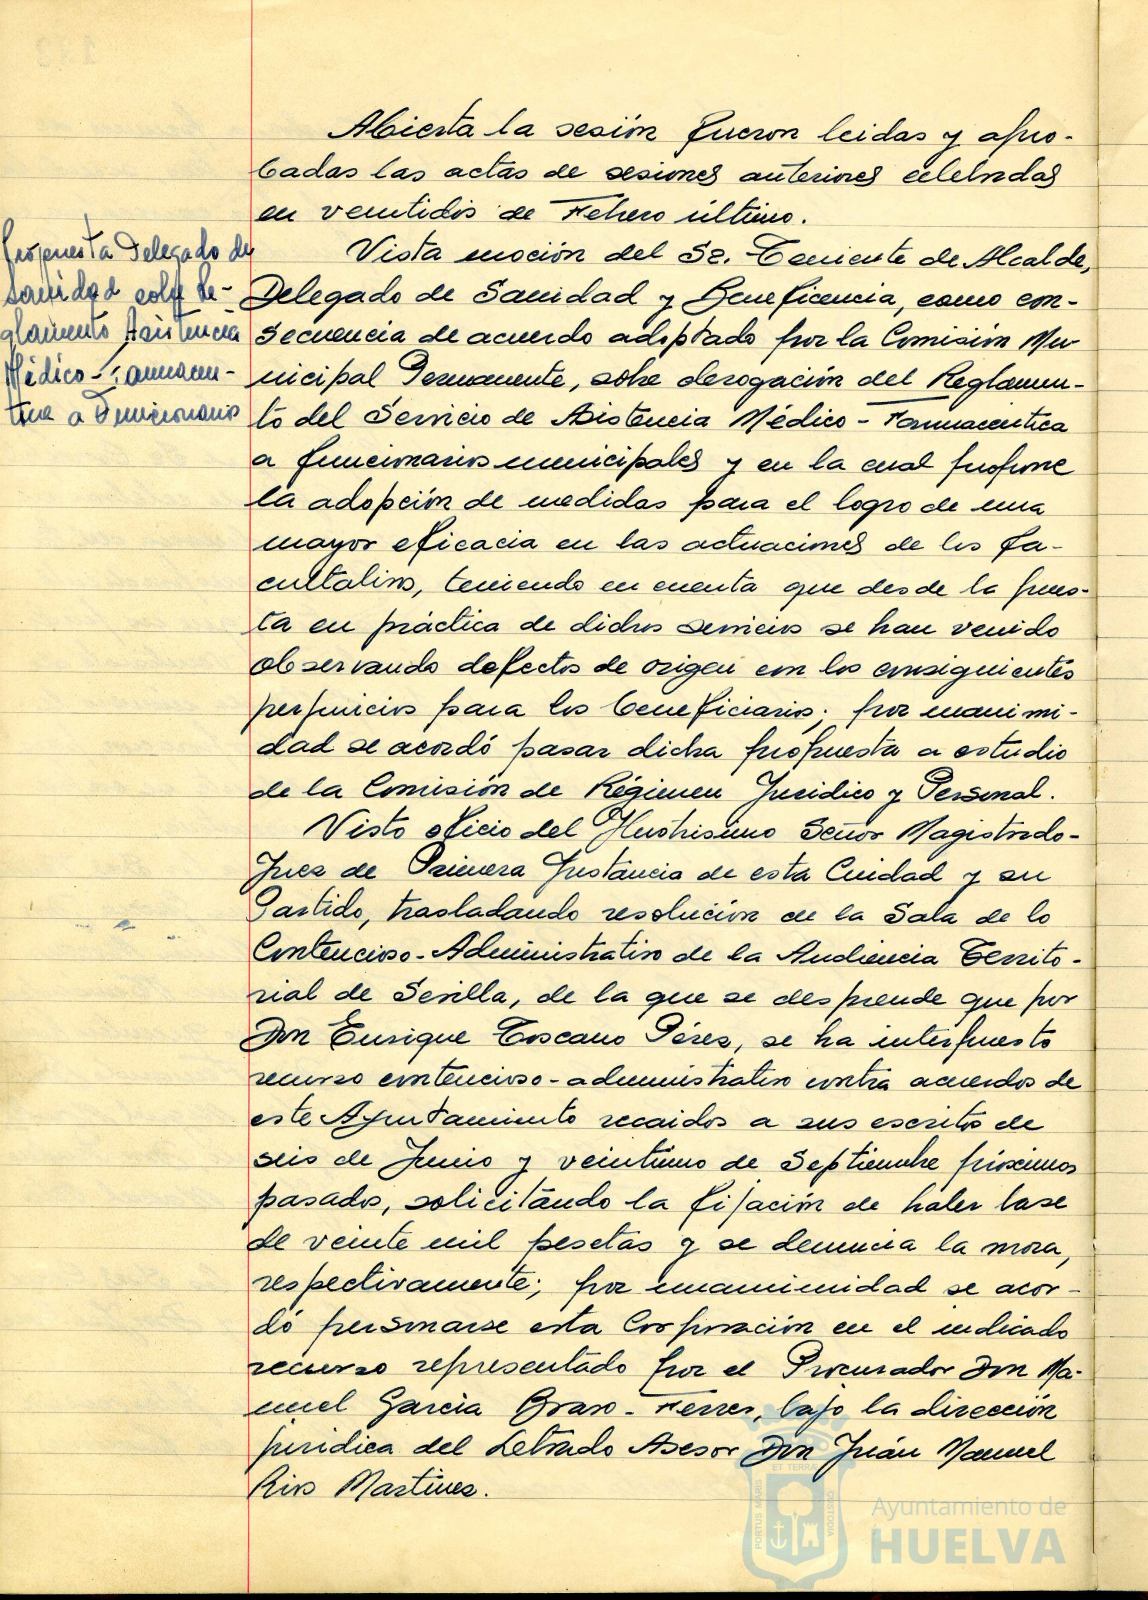 Abierta la sesión fueron leidas y apro-
badas las actas de sesiones anteriores celebradas
en veintidós de Febrero último.
Propuesta Delegado de
Sanidad sobre Re-
glamento Asistencia
Médico-Farmaceu-
tica a Funcionarios
Vista moción del Sr. Teniente de Alcalde,
Delegado de Sanidad y Beneficencia, como con-
secuencia de acuerdo adoptado por la Comisión Mu-
nicipal Permanente, sobre derogación del Reglamen-
to del Servicio de Asistencia Médico-Farmaceutica
a funcionarios municipales y en la cual propone
la adopción de medidas para el logro de una
mayor eficacia en las actuaciones de los fa-
cultativos, teniendo en cuenta que desde la pues-
ta en práctica de dichos servicios se han venido
observando defectos de origen con los consiguientes
perjuicios para los beneficiarios; por unanimi-
dad se acordó pasar dicha propuesta a estudio
de la Comisión de Régimen Juridico y Personal.
Visto oficio del Ilustrisimo Señor Magistrado-
Juez de Primera Instancia de esta Ciudad y su
Partido, trasladando resolución de la Sala de lo
Contencioso-Administrativo de la Audiencia Territo-
rial de Sevilla, de la que se desprende que por
Don Enrique Toscano Pérez, se ha interpuesto
recurso contencioso-administrativo contra acuerdos de
este Ayuntamiento recaidos a sus escritos de
seis de Junio y veintiuno de Septiembre próximos
pasados, solicitando la fijación de haber base
de veinte mil pesetas y se denuncia la mora,
respectivamente; por unanimidad se acor-
dó personarse esta Corporación en el indicado
recurso representado por el Procurador Don Ma-
nuel Garcia Bravo-Ferrer, bajo la dirección
juridica del Letrado Asesor Don Juán Manuel
Rios Martinez.
PORTUS MARIS
ET TERRAE
CUSTODIA
Ayuntamiento de
HUELVA